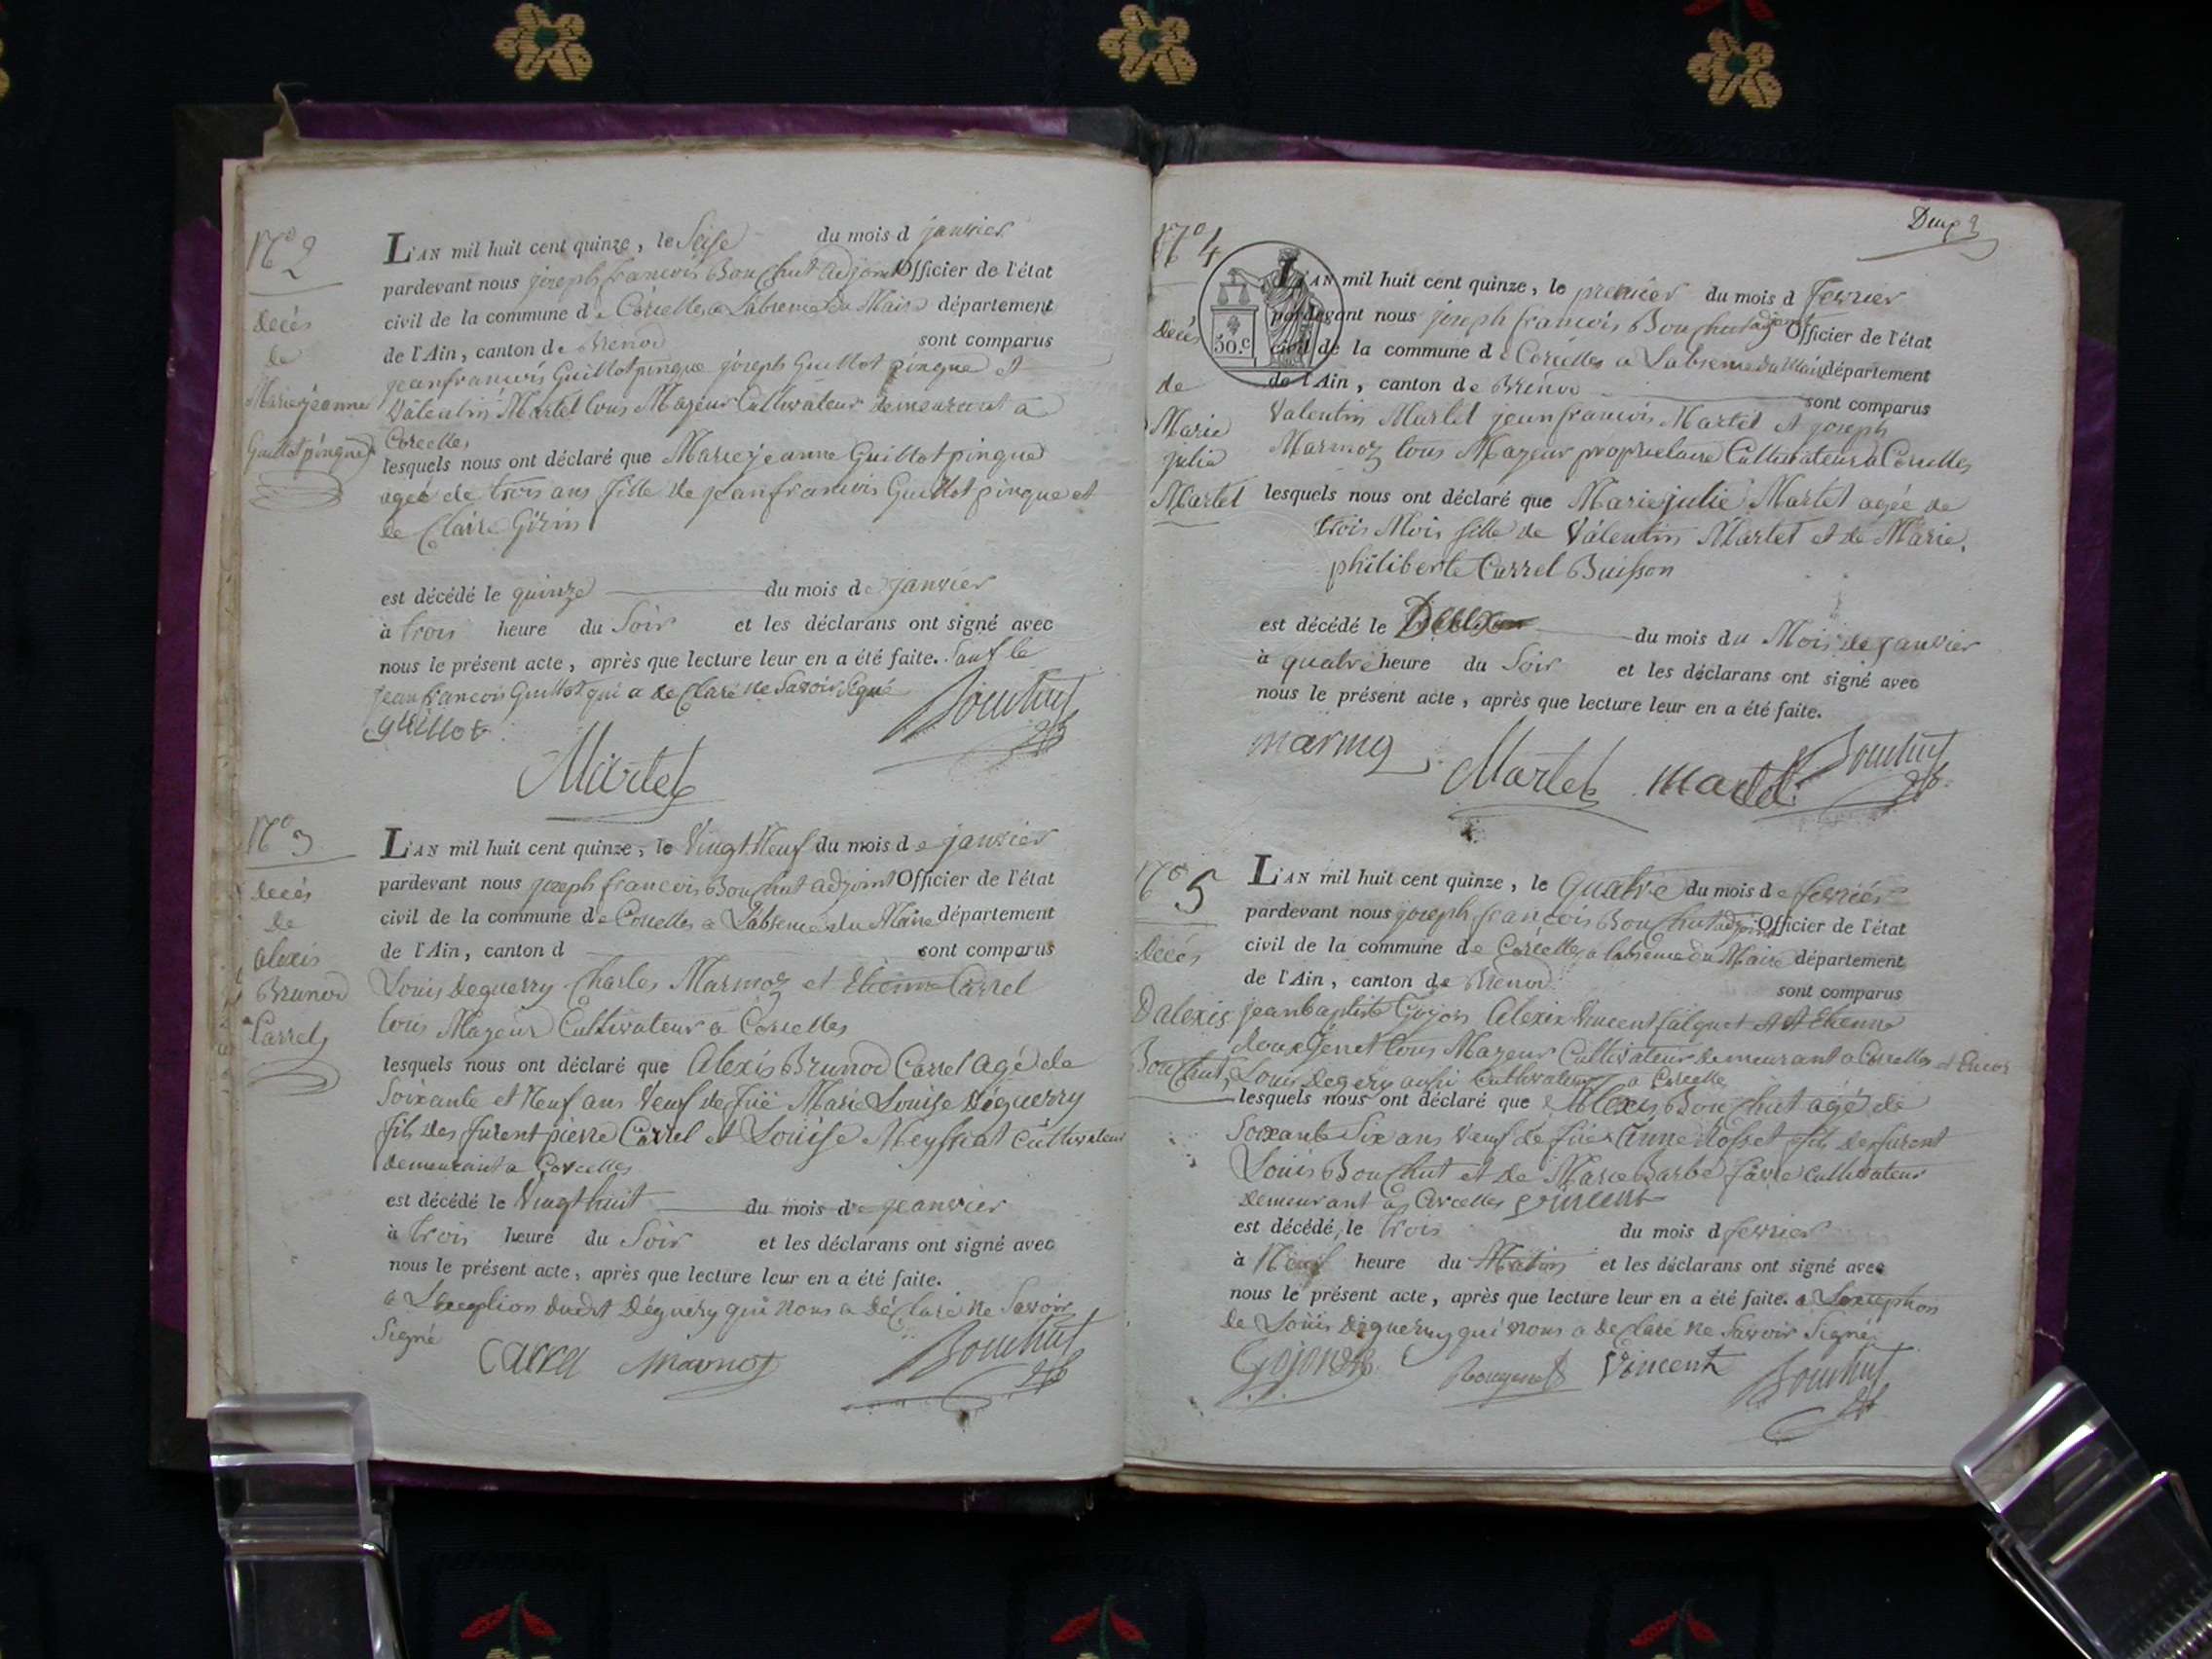 N.o 2
decés
de
Marie jeanne
Guillot pingue
L'AN mil huit cent quinze, le Seise du mois d janvier
pardevant nous joseph francois Bouchut adjoint Officier de l'état
civil de la commune de Corcelles a L'absence du Maire département
de l'Ain, canton de Brenod sont comparus
jeanfrancois Guillot pingue joseph Guillot pingue et
Valentin Martel tous Majeur Cultivateur demeurant a
Corcelles
lesquels nous ont déclaré que Marie jeanne Guillot pingue
agée de trois ans fille de jeanfrancois Guillot pingue et
de Claire Girin
est décédé le quinze du mois de janvier
à trois heure du Soir et les déclarans ont signé avec
nous le présent acte, après que lecture leur en a été faite. Sauf le
jean francois Guillot qui a declaré ne Savoir Signé
guillot Bouchut
Martel
N.o 3
decés
de
alexis
Brunod
Carrel
L'AN mil huit cent quinze, le Vingt Neuf du mois de janvier
pardevant nous joseph francois Bouchut adjoint Officier de l'état
civil de la commune de Corcelles a L'absence du Maire département
de l'Ain, canton d sont comparus
Louis deguerry Charles Marmoz et Etienne Carrel
tous Majeur Cultivateur a Corcelles
lesquels nous ont déclaré que Alexis Brunod Carrel agé de
Soixante et Neuf ans Veuf de fuë Marie Louise Déguerry
fils des furent pierre Carrel et Louise Meyffrat Cultivateur
demeurant a Corcelles
est décédé le Vingt huit du mois de jeanvier
à trois heure du Soir et les déclarans ont signé avec
nous le présent acte, après que lecture leur en a été faite.
a L'exception dudit Déguerry qui nous a déClaré ne Savoir
Signé
Carrel Marmoz Bouchut
Deux 2
N.o 4
decés
de
Marie
julie
Martel
50.c
L'AN mil huit cent quinze, le premier du mois d fevrier
pardevant nous joseph francois Bouchut adjoint Officier de l'état
civil de la commune de Corcelles a L'absence du Maire département
de l'Ain, canton de Brenod sont comparus
Valentin Martel jeanfrancois Martel et joseph
Marmoz tous Majeur proprietaire Cultivateur a Corcelles
lesquels nous ont déclaré que Marie julie Martel agée de
trois Mois fille de Valentin Martel et de Marie
philiberte Carrel Buisson
est décédé le Deux du mois du Mois de janvier
à quatre heure du Soir et les déclarans ont signé avec
nous le présent acte, après que lecture leur en a été faite.
Martel Martel Bouchut
N.o 5
decés
D'alexis
Bouchut
L'AN mil huit cent quinze, le quatre du mois de fevrier
pardevant nous joseph francois Bouchut adjoint Officier de l'état
civil de la commune de Corcelles a l'absence du Maire département
de l'Ain, canton de Brenod sont comparus
jeanbaptiste Gojon Alexix Vincent falquet et Etienne
tous Majeur Cultivateur demeurant a Corcelles et Encor
Louis Degery aussi Cultivateur a Corcelle
lesquels nous ont déclaré que Alexis Bouchut agé de
Soixante Six ans Veuf de fuë Anne Rosset fils des furent
Louis Bouchut et de Marie Barbe favre Cultivateur
demeurant a Corcelles vincent
est décédé le trois du mois d fevrier
à Neuf heure du Matin et les déclarans ont signé avec
nous le présent acte, après que lecture leur en a été faite. a L'exception
de Louis deguerry qui nous a deClaré ne Savoir Signé
Gojon Vincent Bouchut